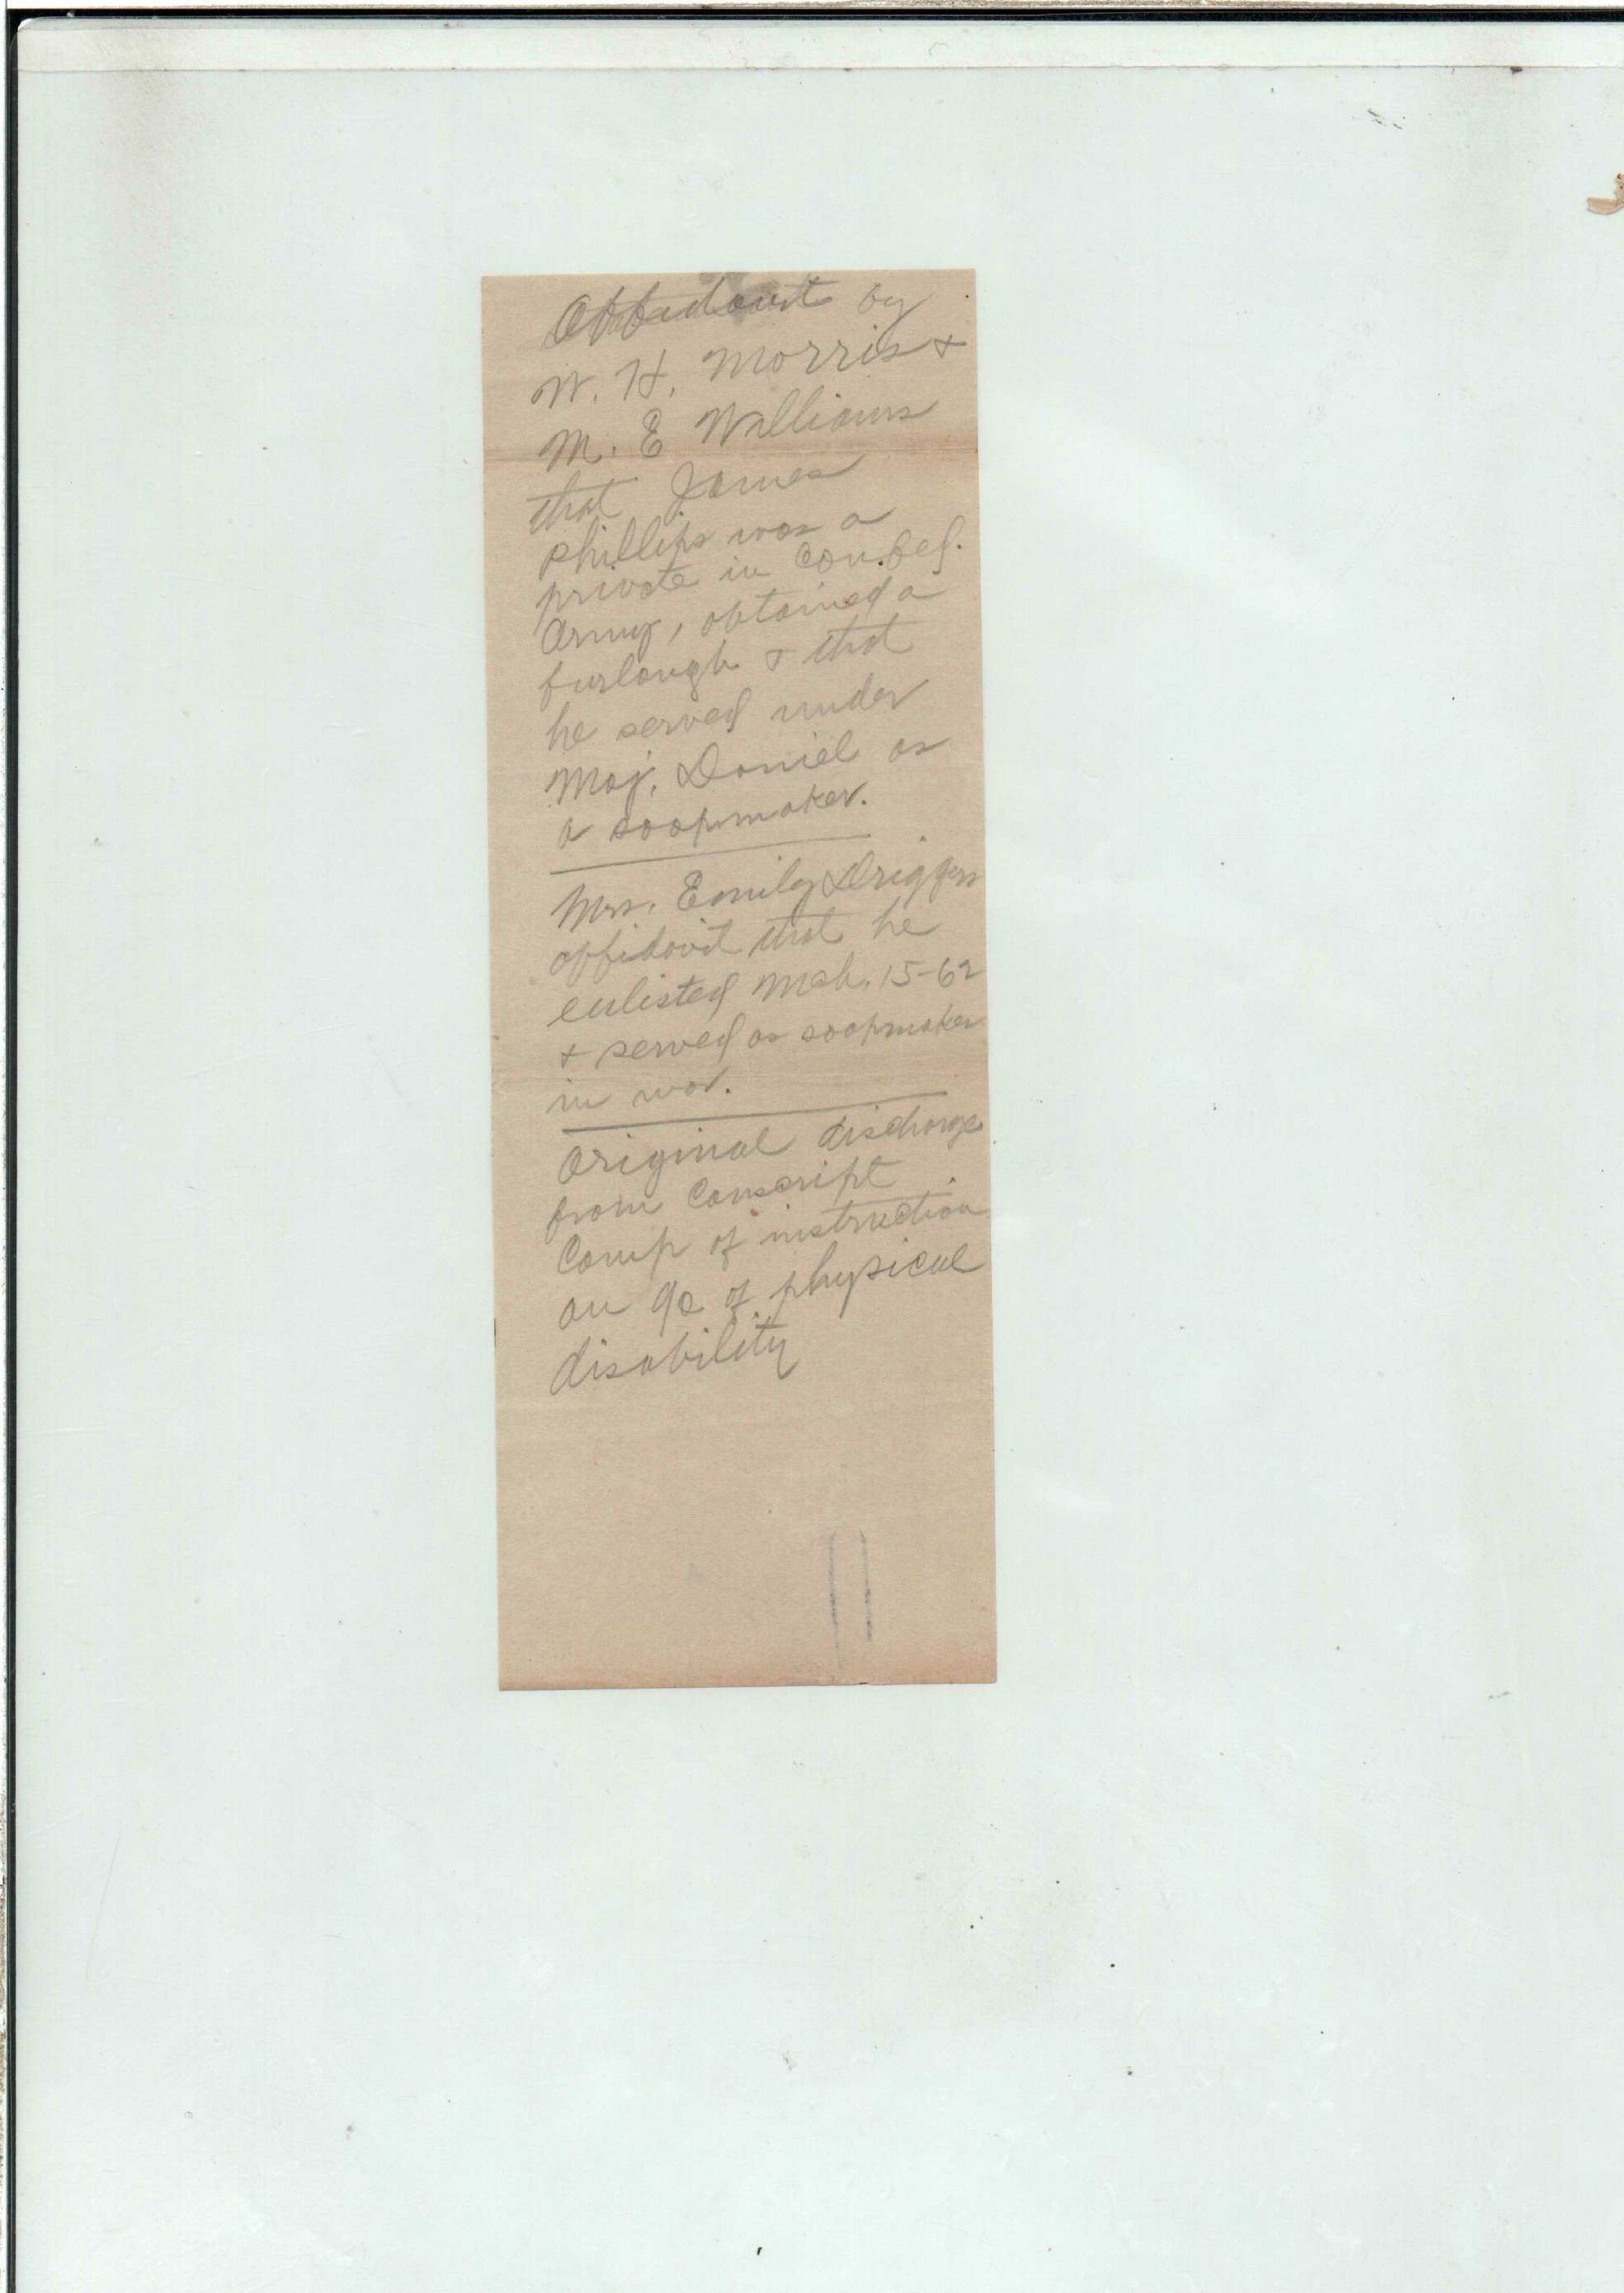 Affidavit by
W. H. Morris &
M. E Williams
that James
Phillips was a
private in Confed.
Army, obtained a
furlough & that
he served under
Maj. Daniel as
a soapmaker.
Mrs. Emily Driggers
affidavit that he
enlisted Mch. 15-62
& served as soapmaker
in war.
Original discharge
from Conscript
Camp of instruction
on a/c of physical
disability